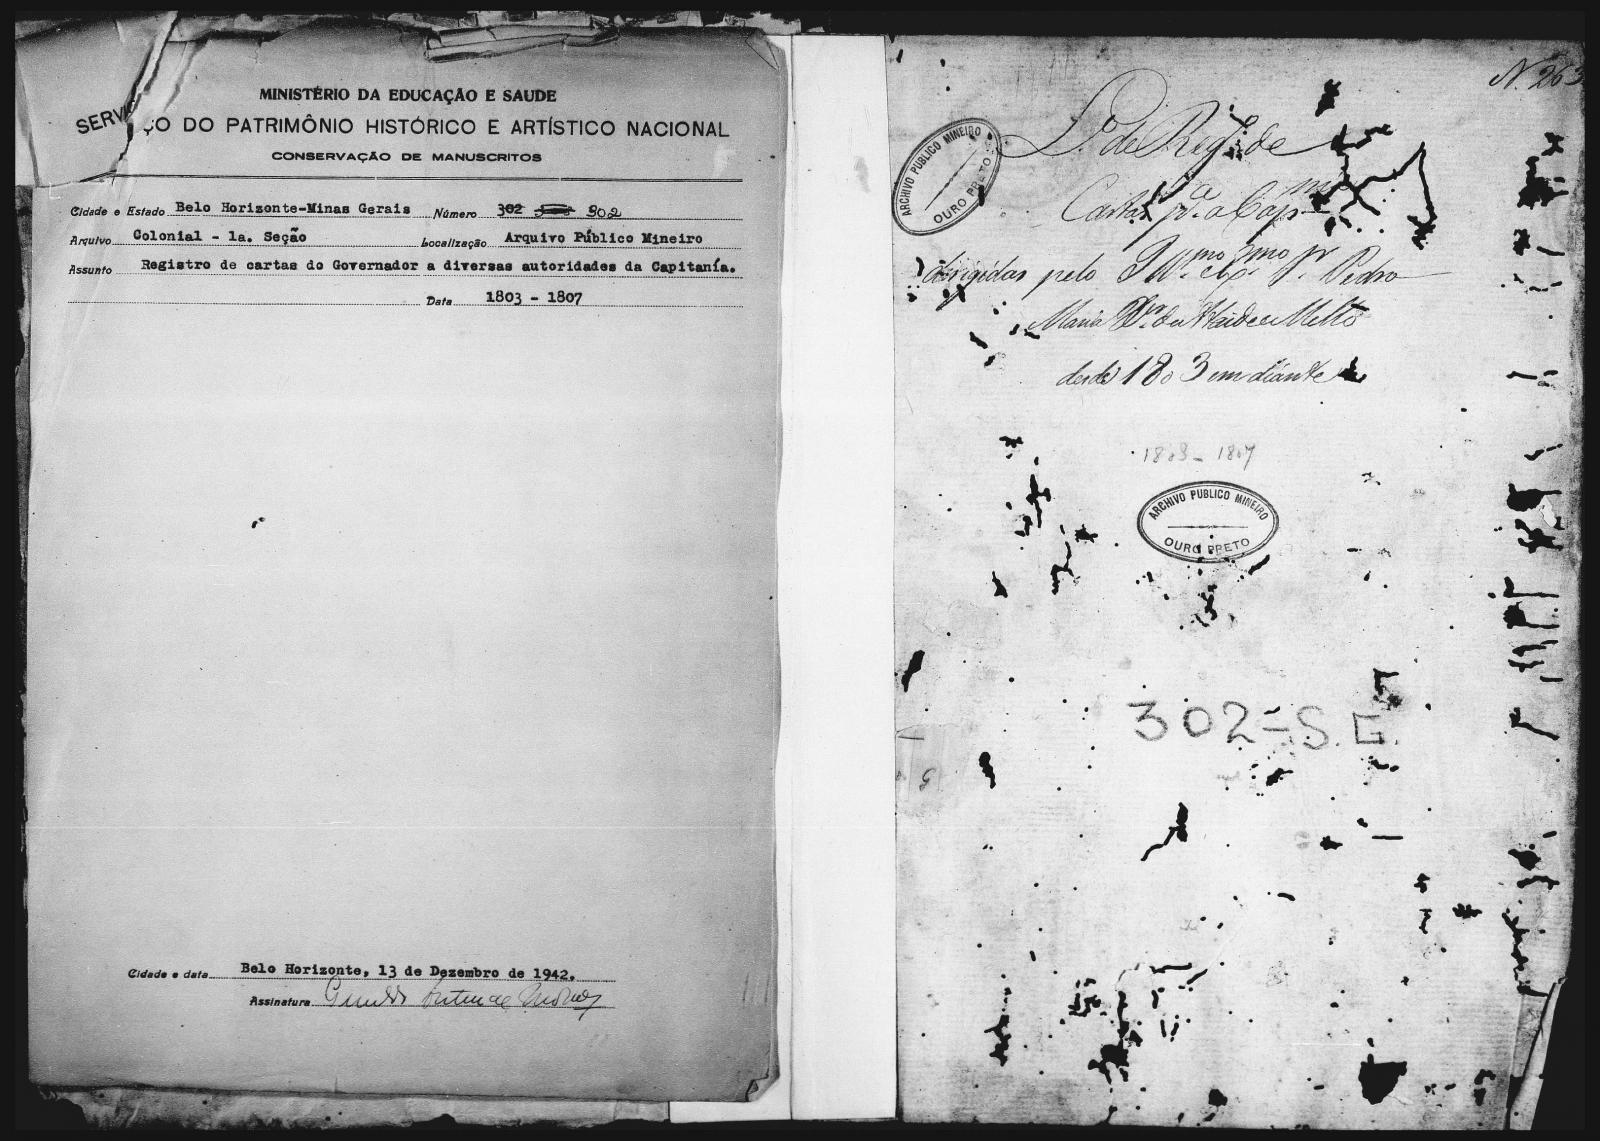 MINISTÉRIO DA EDUCAÇÃO E SAUDE
SERVIÇO DO PATRIMÔNIO HISTÓRICO E ARTÍSTICO NACIONAL
CONSERVAÇÃO DE MANUSCRITOS
Cidade e Estado Belo Horizonte-Minas Gerais Número 302 302
Arquivo Colonial - 1a. Seção Localização Arquivo Público Mineiro
Assunto Registro de cartas do Governador a diversas autoridades da Capitanía.
Data 1803 - 1807
Cidade e data Belo Horizonte, 13 de Dezembro de 1942.
Assinatura
N. 263
ARCHIVO PUBLICO MINEIRO
OURO PRETO
L.º de Reg.º de
Cartas p.ª a Cap.
dirigidas pelo Ill.mo e Ex.mo Sr. Pedro
Maria X.er de Ataide e Mello
desde 1803 em diante
1803 - 1807
ARCHIVO PUBLICO MINEIRO
OURO PRETO
302 = S. G.